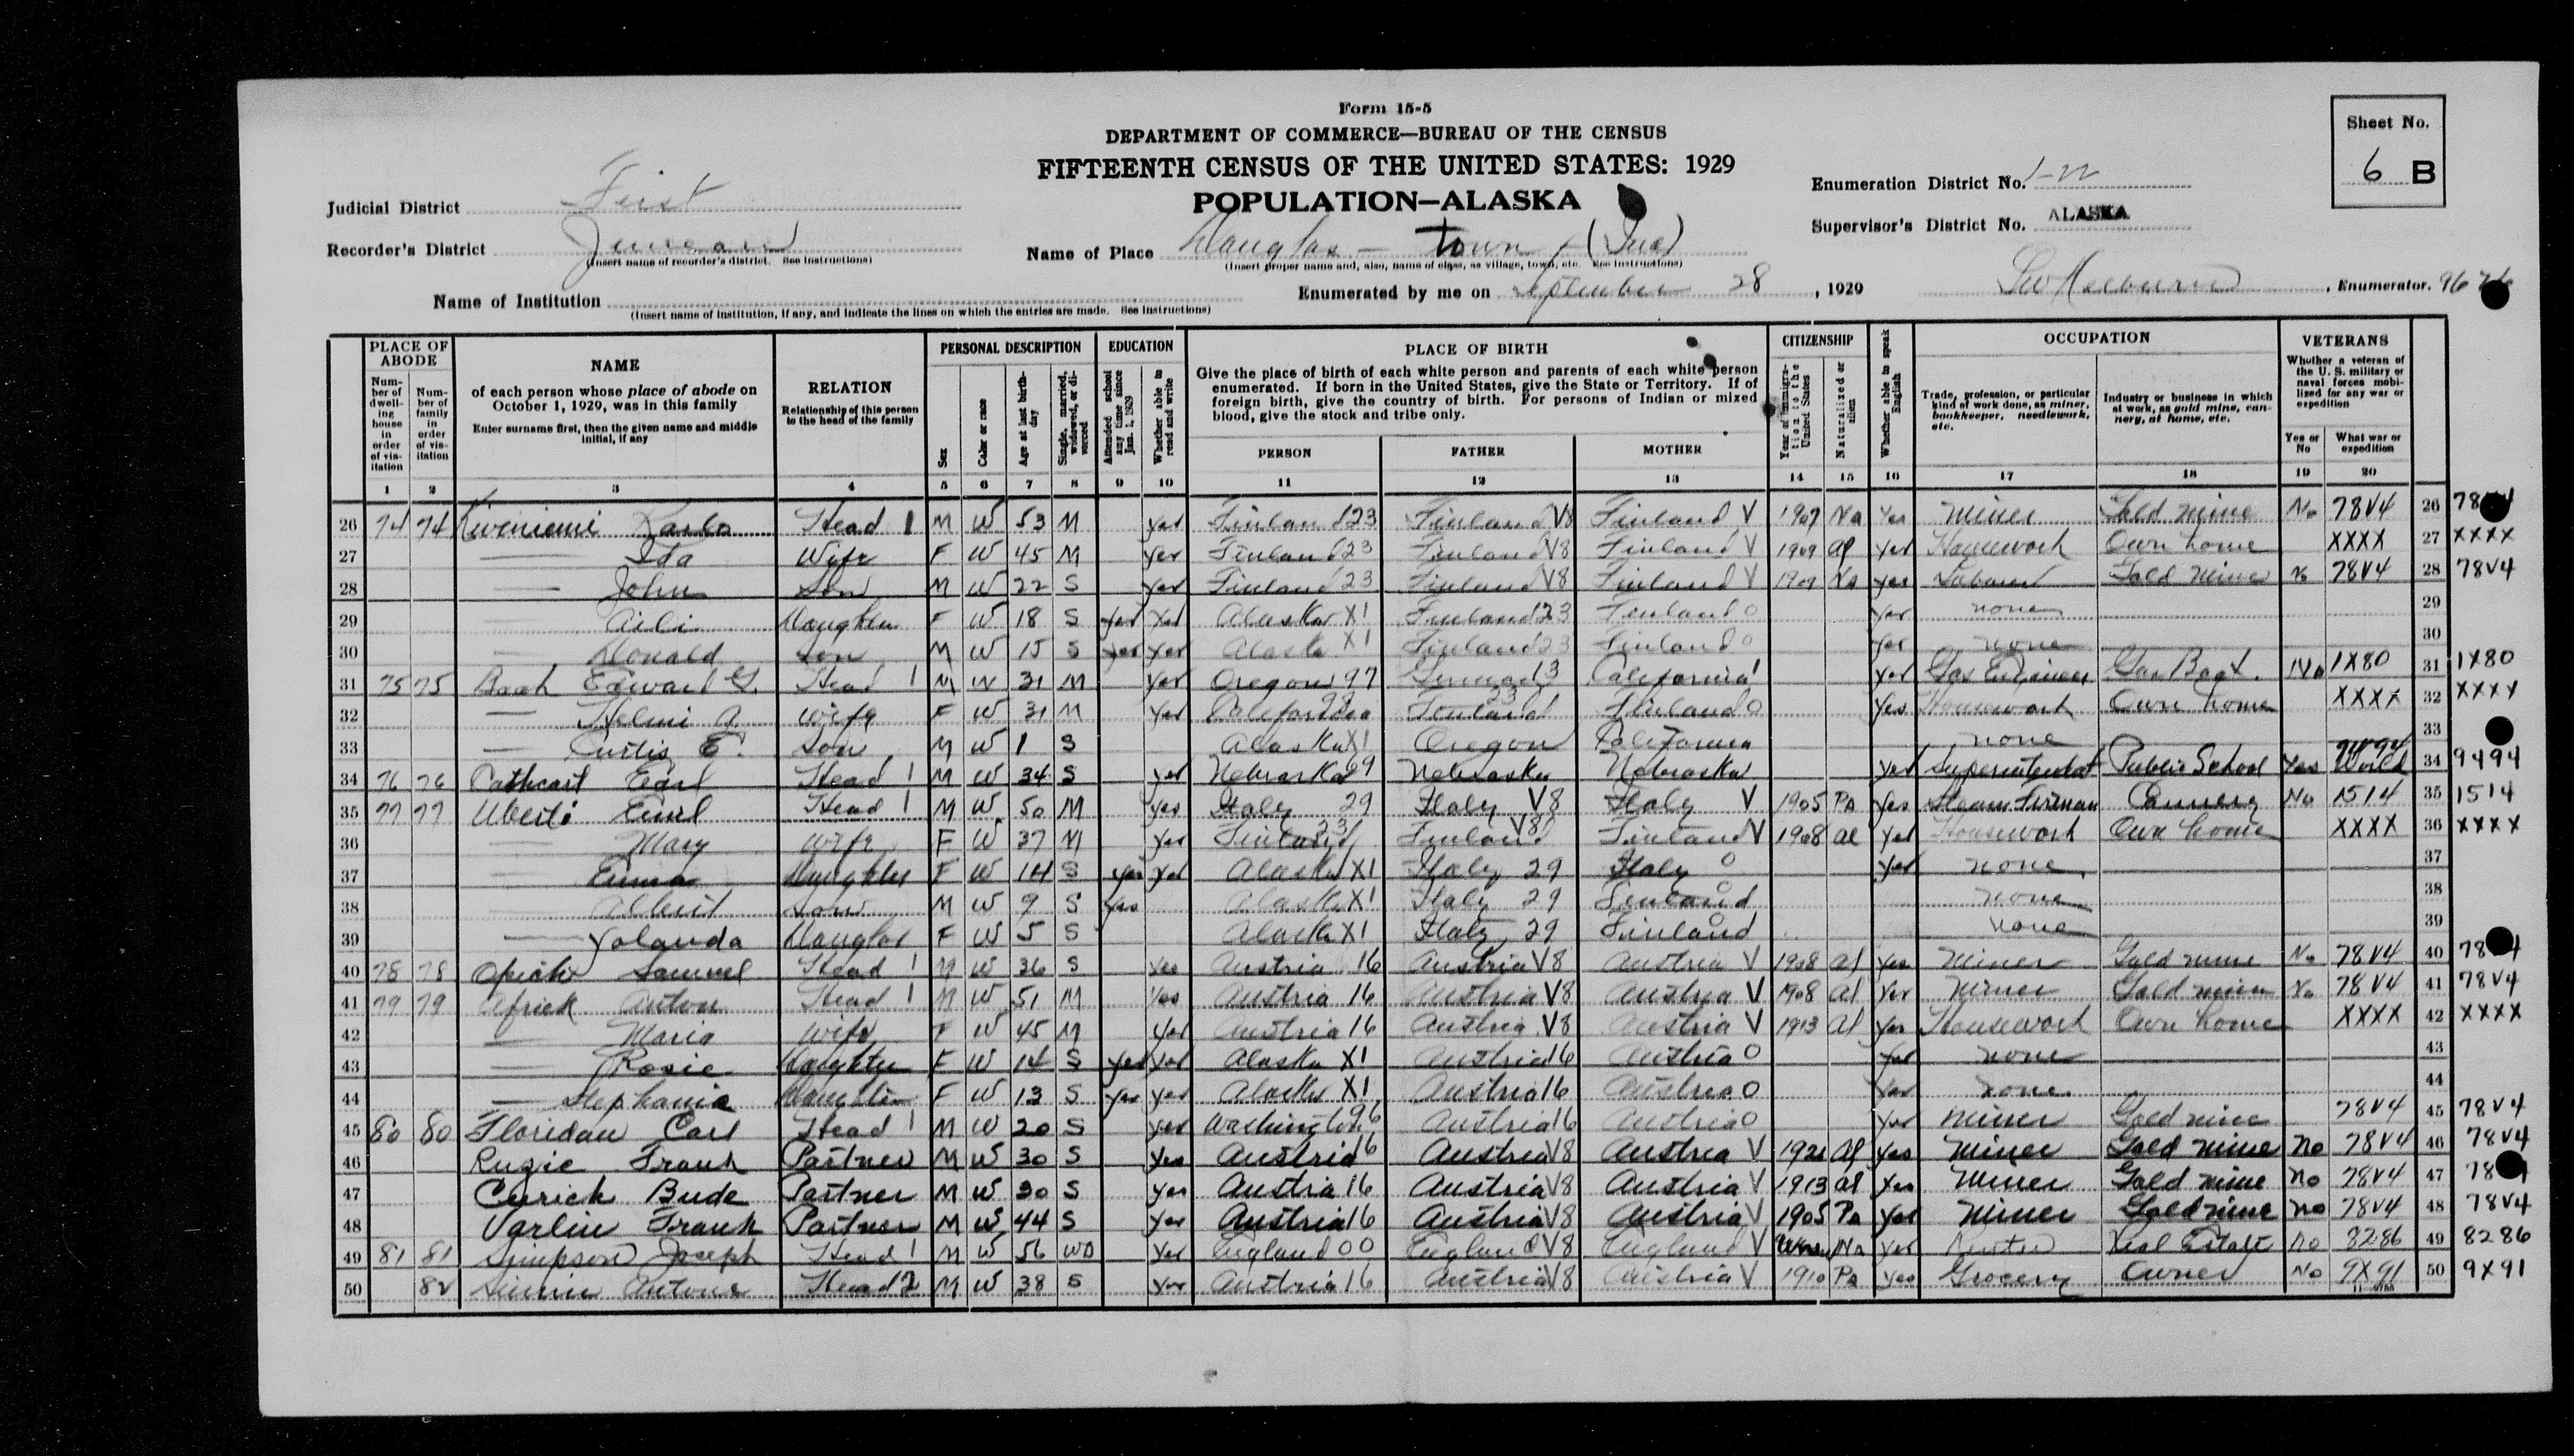 Form 15-5
DEPARTMENT OF COMMERCE—BUREAU OF THE CENSUS
FIFTEENTH CENSUS OF THE UNITED STATES: 1929
POPULATION—ALASKA
Sheet No.
6 B
Judicial District First
Recorder's District Juneau
(Insert name of recorder's district. See instructions)
Name of Place Douglas - Town
(Insert proper name and, also, name of class, as village, town, etc. See instructions)
Enumeration District No. 1-22
Supervisor's District No. ALASKA
Name of Institution
(Insert name of institution, if any, and indicate the lines on which the entries are made. See instructions)
Enumerated by me on September 28, 1929 , Enumerator.
PLACE OF ABODE
Number of dwelling house in order of visitation
Number of family in order of visitation
NAME
of each person whose place of abode on October 1, 1929, was in this family
Enter surname first, then the given name and middle initial, if any
RELATION
Relationship of this person to the head of the family
PERSONAL DESCRIPTION
Sex
Color or race
Age at last birthday
Single, married, widowed, or divorced
EDUCATION
Attended school any time since Jan. 1, 1929
Whether able to read and write
PLACE OF BIRTH
Give the place of birth of each white person and parents of each white person enumerated. If born in the United States, give the State or Territory. If of foreign birth, give the country of birth. For persons of Indian or mixed blood, give the stock and tribe only.
PERSON FATHER MOTHER
CITIZENSHIP
Year of immigration to the United States
Naturalized or alien
Whether able to speak English
OCCUPATION
Trade, profession, or particular kind of work done, as miner, bookkeeper, needlework, etc.
Industry or business in which at work, as gold mine, cannery, at home, etc.
VETERANS
Whether a veteran of the U. S. military or naval forces mobilized for any war or expedition
Yes or No
What war or expedition
1 2 3 4 5 6 7 8 9 10 11 12 13 14 15 16 17 18 19 20
26 74 74 Kiviniemi Head 1 M W 53 M Yes Finland 23 Finland V8 Finland V 1907 Na Yes Miner Gold mine No 78V4 26
27 — Ida Wife F W 45 M Yes Finland 23 Finland V8 Finland V 1909 Al Yes Housework Own home XXXX 27 XXXX
28 — John Son M W 22 S Yes Finland 23 Finland V8 Finland V 1909 Na Yes Laborer Gold Mine No 78V4 28 78V4
29 — Aili Daughter F W 18 S Yes Yes Alaska X1 Finland 23 Finland 0 Yes none 29
30 — Donald Son M W 15 S Yes Yes Alaska X1 Finland 23 Finland 0 Yes none 30
31 75 75 Edward G. Head 1 M W 31 M Yes Oregon 97 Germany 13 California 1 Yes Gas Engineer Gas Boat No 1X80 31 1X80
32 — Helmi Wife F W 31 M Yes Finland 23 Finland 0 Yes Housework Own home XXXX 32 XXXX
33 — Curtis E. Son M W 1 S Alaska X1 Oregon California none 33
34 76 76 Cathcart Earl Head 1 M W 34 S Yes Nebraska Nebraska Nebraska Yes Superintendent Public School Yes World 9494 34 9494
35 77 77 Uberti Emil Head 1 M W 50 M Yes Italy 29 Italy V8 Italy V 1905 Pa Yes Steam Fireman Cannery No 1514 35 1514
36 — Mary Wife F W 37 M Yes Finland 23 Finland V8 Finland V 1908 Al Yes Housework Own home XXXX 36 XXXX
37 — Emma Daughter F W 14 S Yes Yes Alaska X1 Italy 29 Italy 0 Yes none 37
38 — Albert Son M W 9 S Yes Alaska X1 Italy 29 Finland 0 none 38
39 — Yolanda Daughter F W 5 S Alaska X1 Italy 29 Finland 0 none 39
40 78 78 Samuel Head 1 M W 36 S Yes Austria 16 Austria V8 Austria V 1908 Al Yes Miner Gold mine No 78V4 40
41 79 79 Africh Anton Head 1 M W 51 M Yes Austria 16 Austria V8 Austria V 1908 Al Yes Miner Gold mine No 78V4 41 78V4
42 — Maria Wife F W 45 M Yes Austria 16 Austria V8 Austria V 1913 Al Yes Housework Own home XXXX 42 XXXX
43 — Rosie Daughter F W 14 S Yes Yes Alaska X1 Austria 16 Austria 0 Yes none 43
44 — Stephania Daughter F W 13 S Yes Yes Alaska X1 Austria 16 Austria 0 Yes none 44
45 80 80 Floridan Carl Head 1 M W 20 S Yes Washington 96 Austria 16 Austria 0 Yes Miner Gold mine 78V4 45 78V4
46 Ruzic Frank Partner M W 30 S Yes Austria 16 Austria V8 Austria V 1921 Al Yes Miner Gold mine No 78V4 46 78V4
47 Bude Partner M W 30 S Yes Austria 16 Austria V8 Austria V 1913 Al Yes Miner Gold mine No 78V4 47
48 Varlin Frank Partner M W 44 S Yes Austria 16 Austria V8 Austria V 1905 Pa Yes Miner Gold mine No 78V4 48 78V4
49 81 81 Simpson Joseph Head 1 M W 56 WD Yes England 00 England V8 England V Na Yes Real Estate No 8286 49 8286
50 82 Antone Head 2 M W 38 S Yes Austria 16 Austria V8 Austria V 1910 Pa Yes Grocery Owner No 9X91 50 9X91